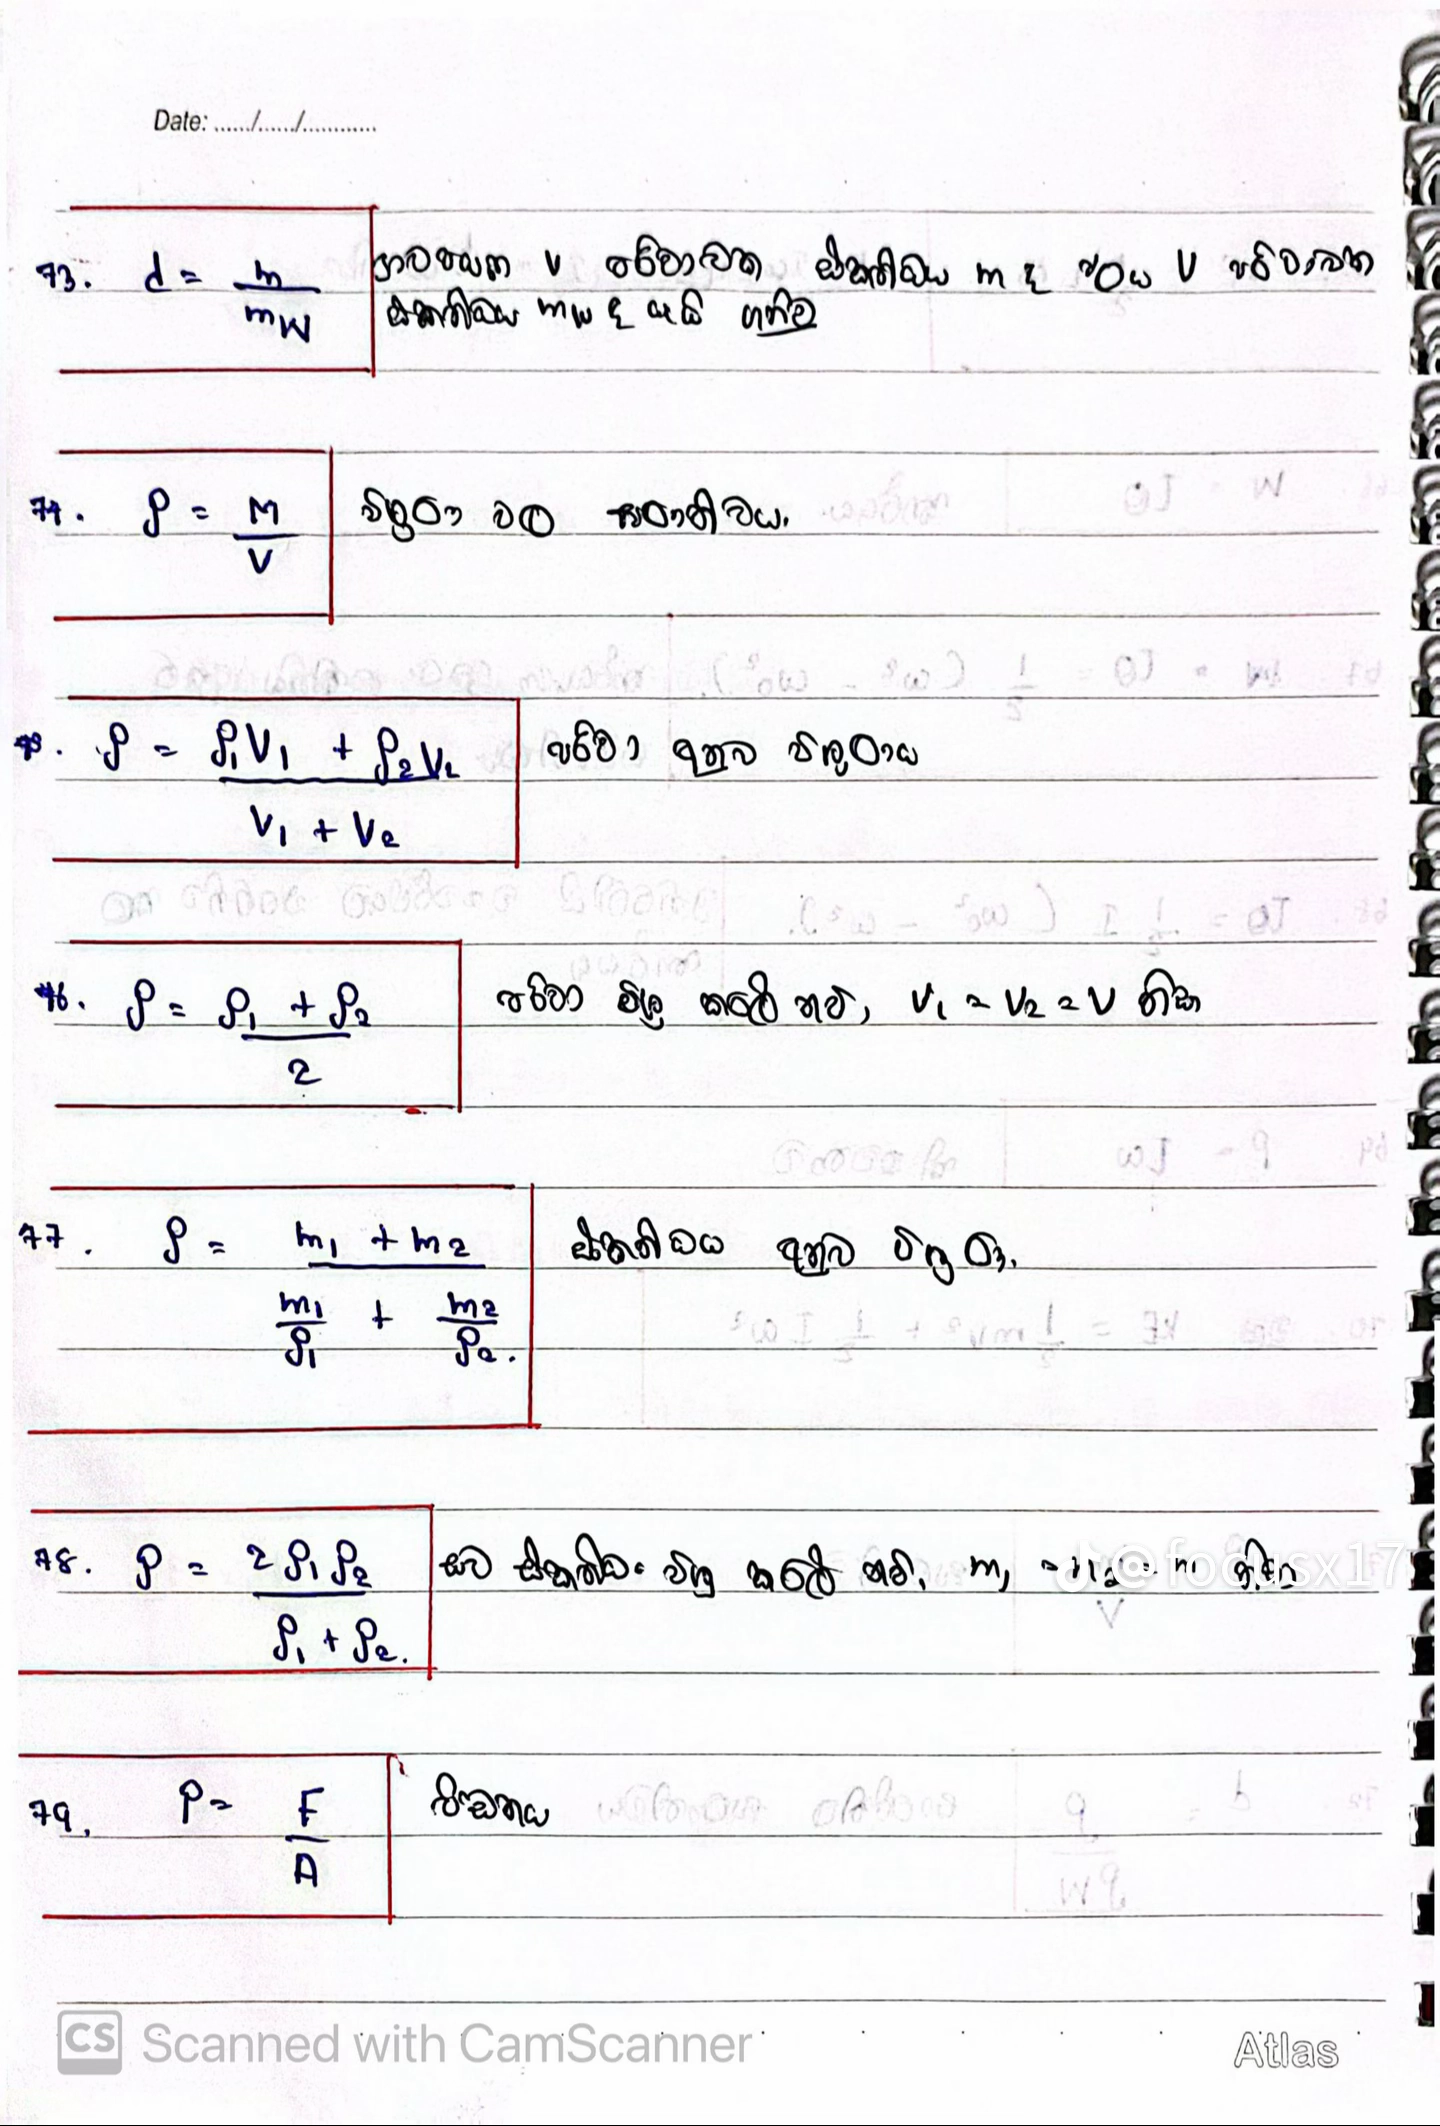 Date: ....../....../............
73. d = m / mw ද්‍රව්‍යයක V පරිමාවක ස්කන්ධය m ද ජලය V පරිමාවක
ස්කන්ධය mw ද යැයි ගනිමු
74. ρ = M / V මිශ්‍රණ වල ඝනත්වය.
ρ = ρ1V1 + ρ2V2 / V1 + V2 පරිමා අනුව මිශ්‍රණය
76. ρ = ρ1 + ρ2 / 2 පරිමා මිශ්‍ර කළේ නම්, V1 = V2 = V නිසා
77. ρ = m1 + m2 / m1/ρ1 + m2/ρ2. ස්කන්ධය අනුව මිශ්‍රණ.
78. ρ = 2ρ1ρ2 / ρ1 + ρ2. සම ස්කන්ධ මිශ්‍ර කළේ නම්, m1 = m2 = m නිසා
@focusx17
79. P = F / A පීඩනය
CS Scanned with CamScanner
Atlas